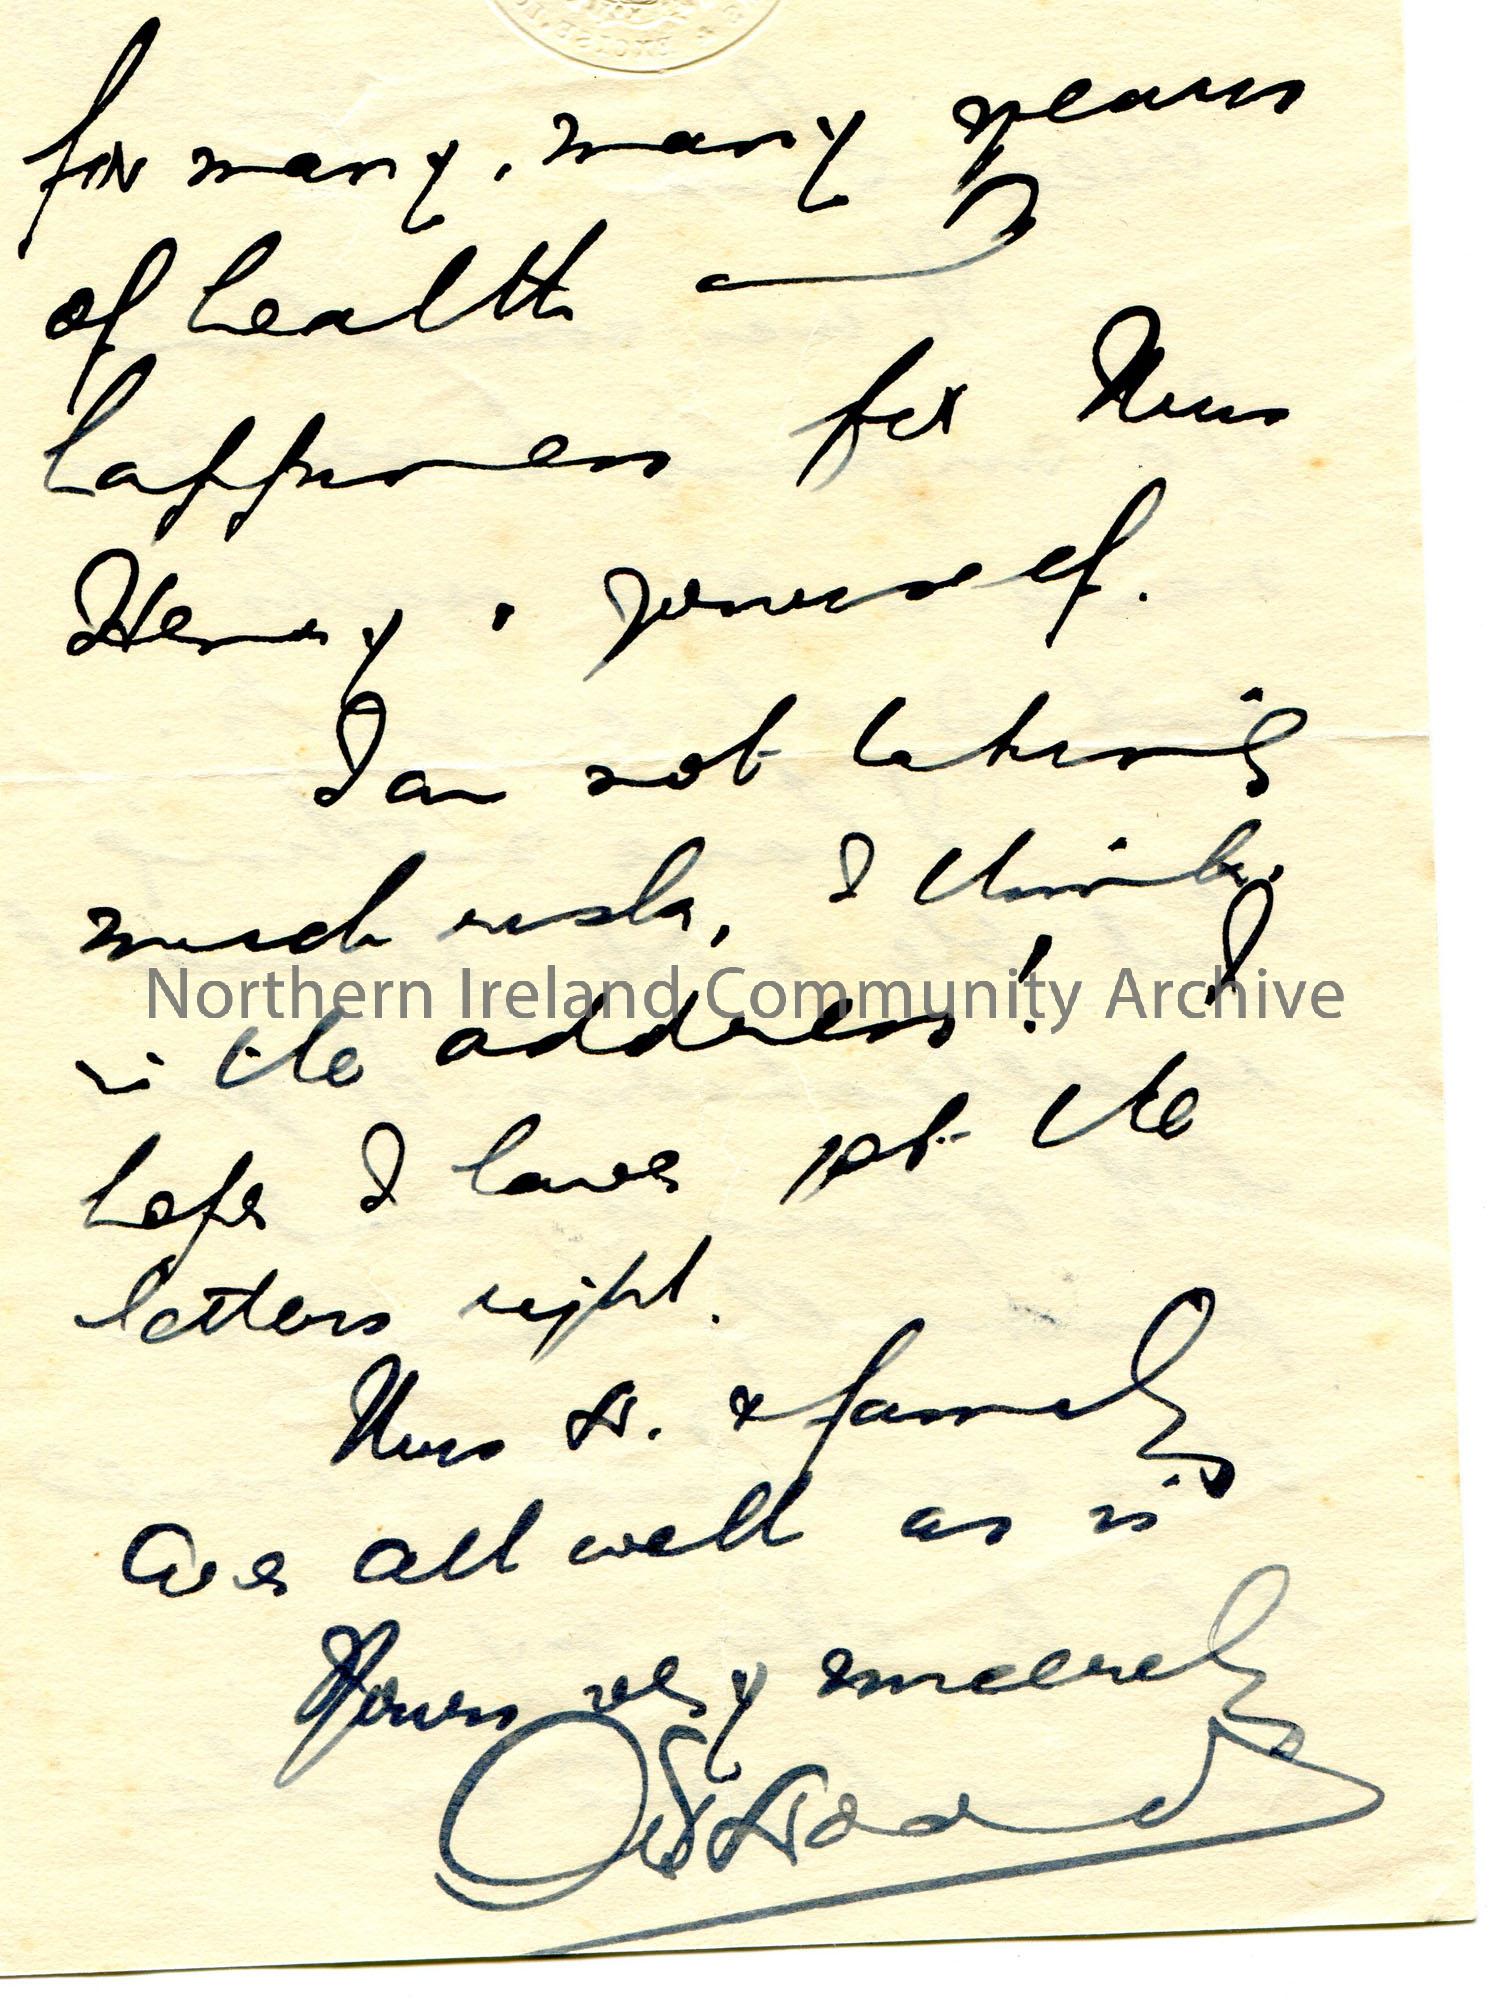 for many, many years
of health and
happiness for Mrs
Henry & yourself.
I am not taking
much risk, I think,
in the address! I
hope I have got the
letters right.
Mrs H. & family
are all well as is
Yours very sincerely
Northern Ireland Community Archive